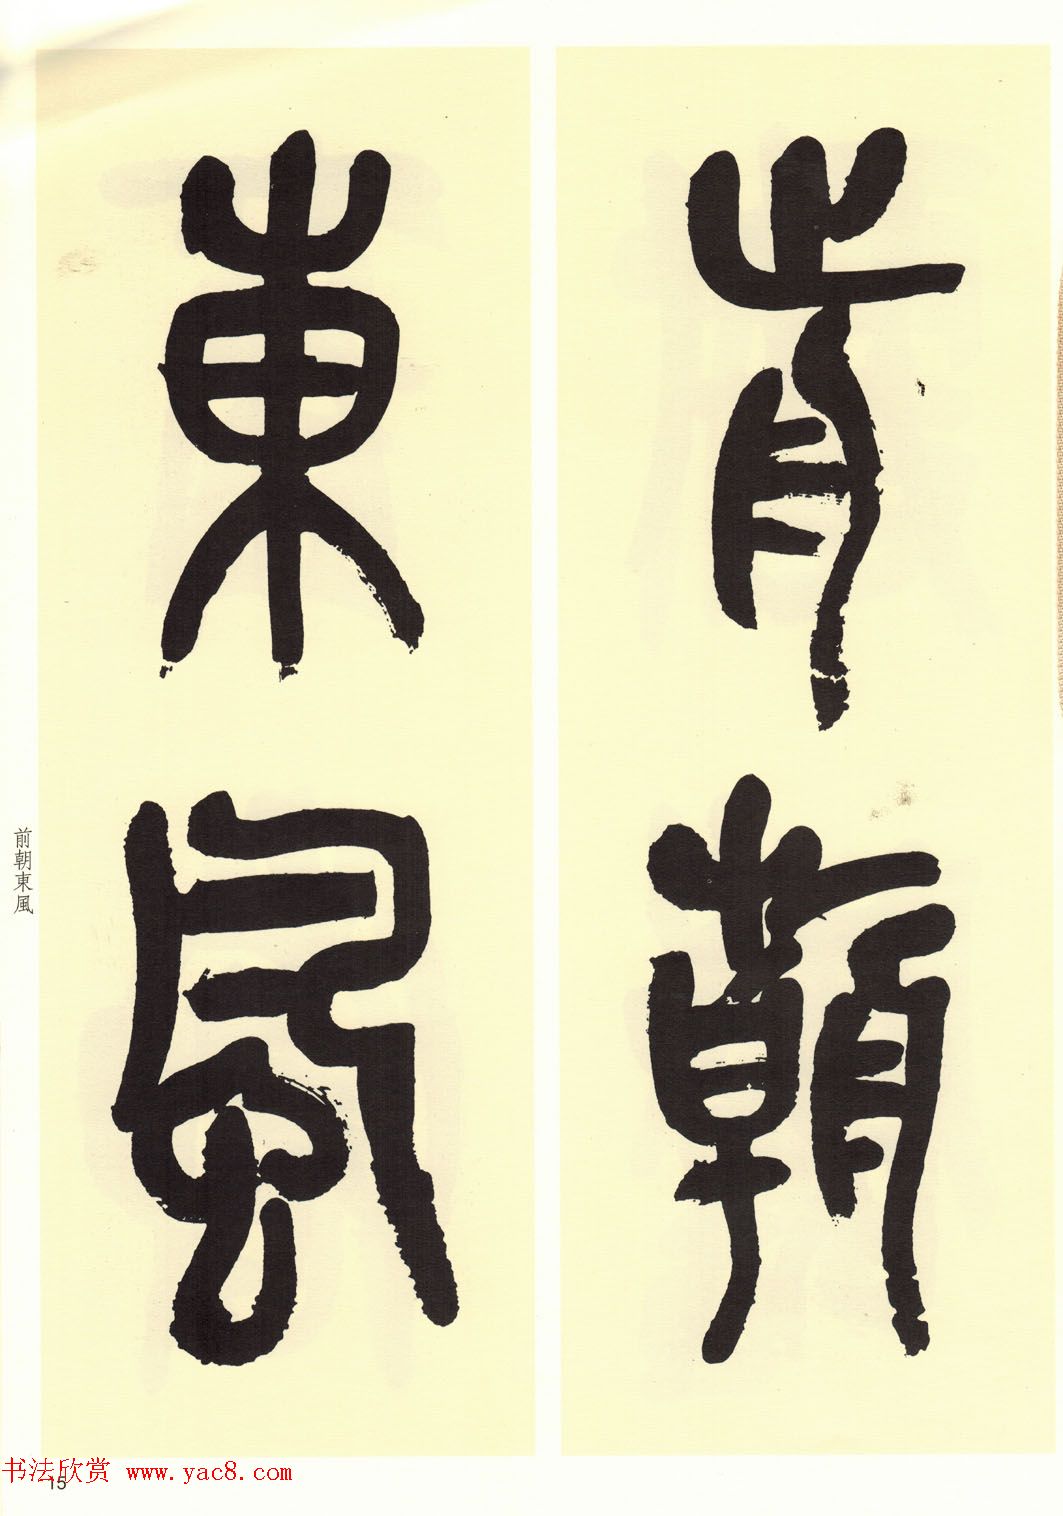 前朝
東風
前朝東風
书法欣赏 www.yac8.com
15